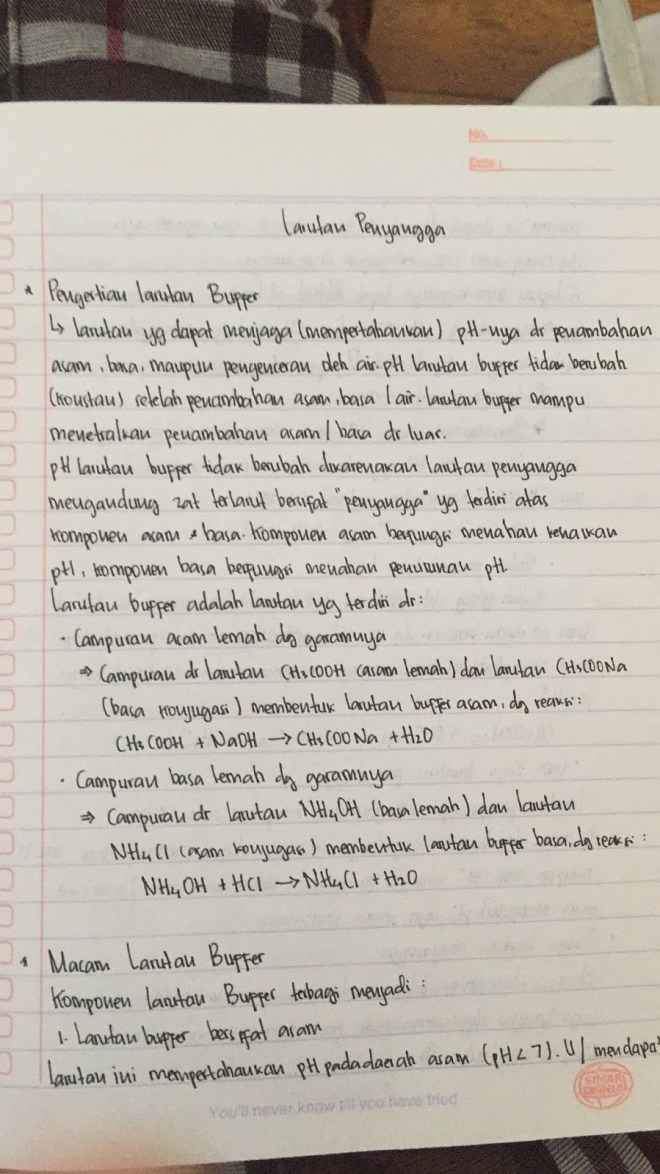 No.
Date :
Larutan Penyangga
* Pengertian larutan Buffer
↳ larutan yg dapat menjaga (mempertahankan) pH-nya dr penambahan
asam, basa, maupun pengenceran oleh air. pH larutan buffer tidak berubah
(konstan) setelah penambahan asam, basa / air. larutan buffer mampu
menetralkan penambahan asam / basa dr luar.
pH larutan buffer tidak berubah dikarenakan larutan penyangga
mengandung zat terlarut bersifat "penyangga" yg terdiri atas
komponen asam & basa. Komponen asam berfungsi menahan kenaikan
pH, komponen basa berfungsi menahan penurunan pH.
Larutan buffer adalah larutan yg terdiri dr :
· Campuran asam lemah dg garamnya
⇒ Campuran dr larutan CH3COOH (asam lemah) dan larutan CH3COONa
(basa konjugasi) membentuk larutan buffer asam, dg reaksi :
CH3COOH + NaOH → CH3COONa + H2O
· Campuran basa lemah dg garamnya
⇒ Campuran dr larutan NH4OH (basa lemah) dan larutan
NH4Cl (asam konjugasi) membentuk larutan buffer basa, dg reaksi :
NH4OH + HCl → NH4Cl + H2O
* Macam Larutan Buffer
Komponen larutan Buffer terbagi menjadi :
1. Larutan buffer bersifat asam
larutan ini mempertahankan pH pada daerah asam (pH < 7). U/ mendapat
SINAR DUNIA
You'll never know till you have tried